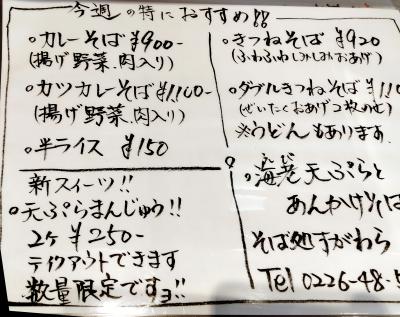 今週の特におすすめ!!
・カレーそば ¥900-
(揚げ野菜、肉入り)
・カツカレーそば ¥1,100-
(揚げ野菜、肉入り)
・半ライス ¥150
・きつねそば ¥920
(ふわふわしみしみおあげ)
・ダブルきつねそば ¥1,10
(ぜいたくおあげ2枚のせ)
※うどんもあります。
新スイーツ!!
・天ぷらまんじゅう!!
2ヶ ¥250-
テイクアウトできます
数量限定ですョ!!
・海老天ぷらと
えび
あんかけそば
そば処すがわら
Tel 0226-48-5